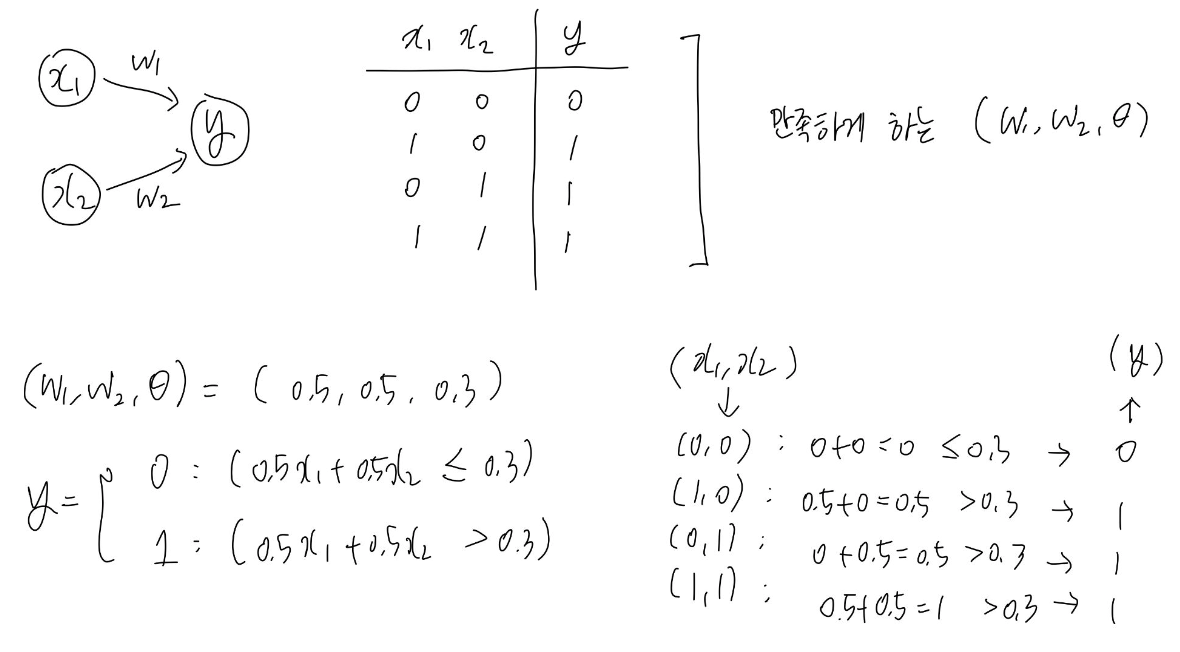 x₁ w₁
y
x₂ w₂
x₁ x₂ y
0 0 0
1 0 1
0 1 1
1 1 1
만족하게 하는 (w₁, w₂, θ)
(w₁, w₂, θ) = (0.5, 0.5, 0.3)
y = { 0 : (0.5x₁ + 0.5x₂ ≤ 0.3)
1 : (0.5x₁ + 0.5x₂ > 0.3)
(x₁, x₂) (y)
↓ ↑
(0,0) : 0+0=0 ≤0.3 → 0
(1,0) : 0.5+0=0.5 >0.3 → 1
(0,1) : 0+0.5=0.5 >0.3 → 1
(1,1) : 0.5+0.5=1 >0.3 → 1